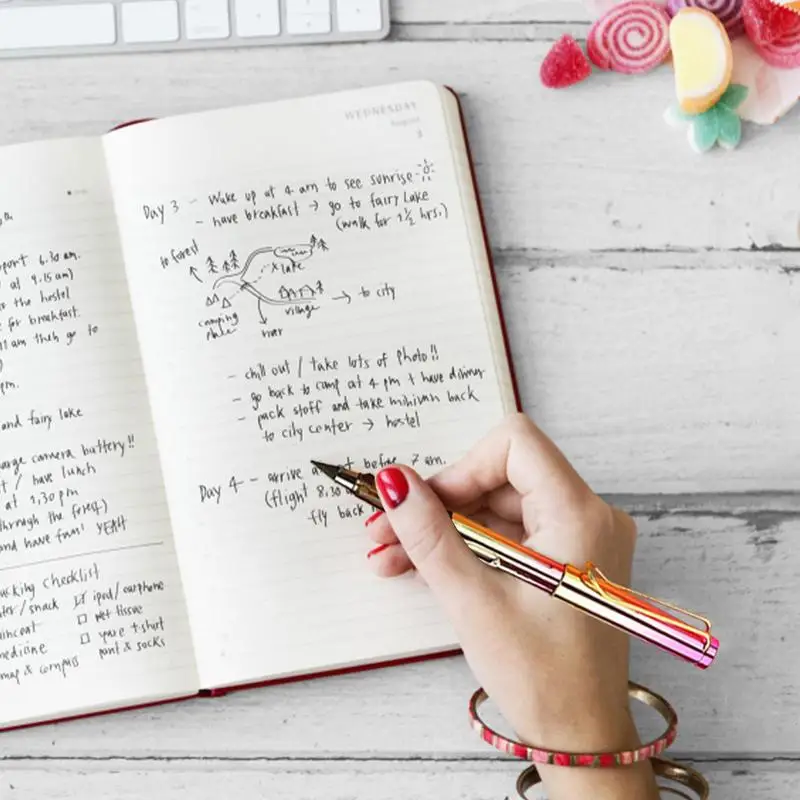 6.30 am.
at 9.15 am)
the hostel
for breakfast.
am then go to
pm.
and fairy lake
camera battery!!
/ have lunch
at 1,30 pm
through the forest)
and have fun! YEAH
checklist
/snack ☑ ipod/earphone
☐ wet tissue
☐ spare t-shirt
pant & socks
map & compass
WEDNESDAY
August
3
Day 3 - Wake up at 4 am to see sunrise
- have breakfast → go to fairy Lake
(walk for 1 1/2 hrs.)
to forest
x lake
→ to city
village
camping
river
- chill out / take lots of photo!!
- go back to camp at 4 pm + have dinner
- pack stoff and take minivan back
to city center → hostel
Day 4 - arrive before 7 am.
(flight 8.30
fly back